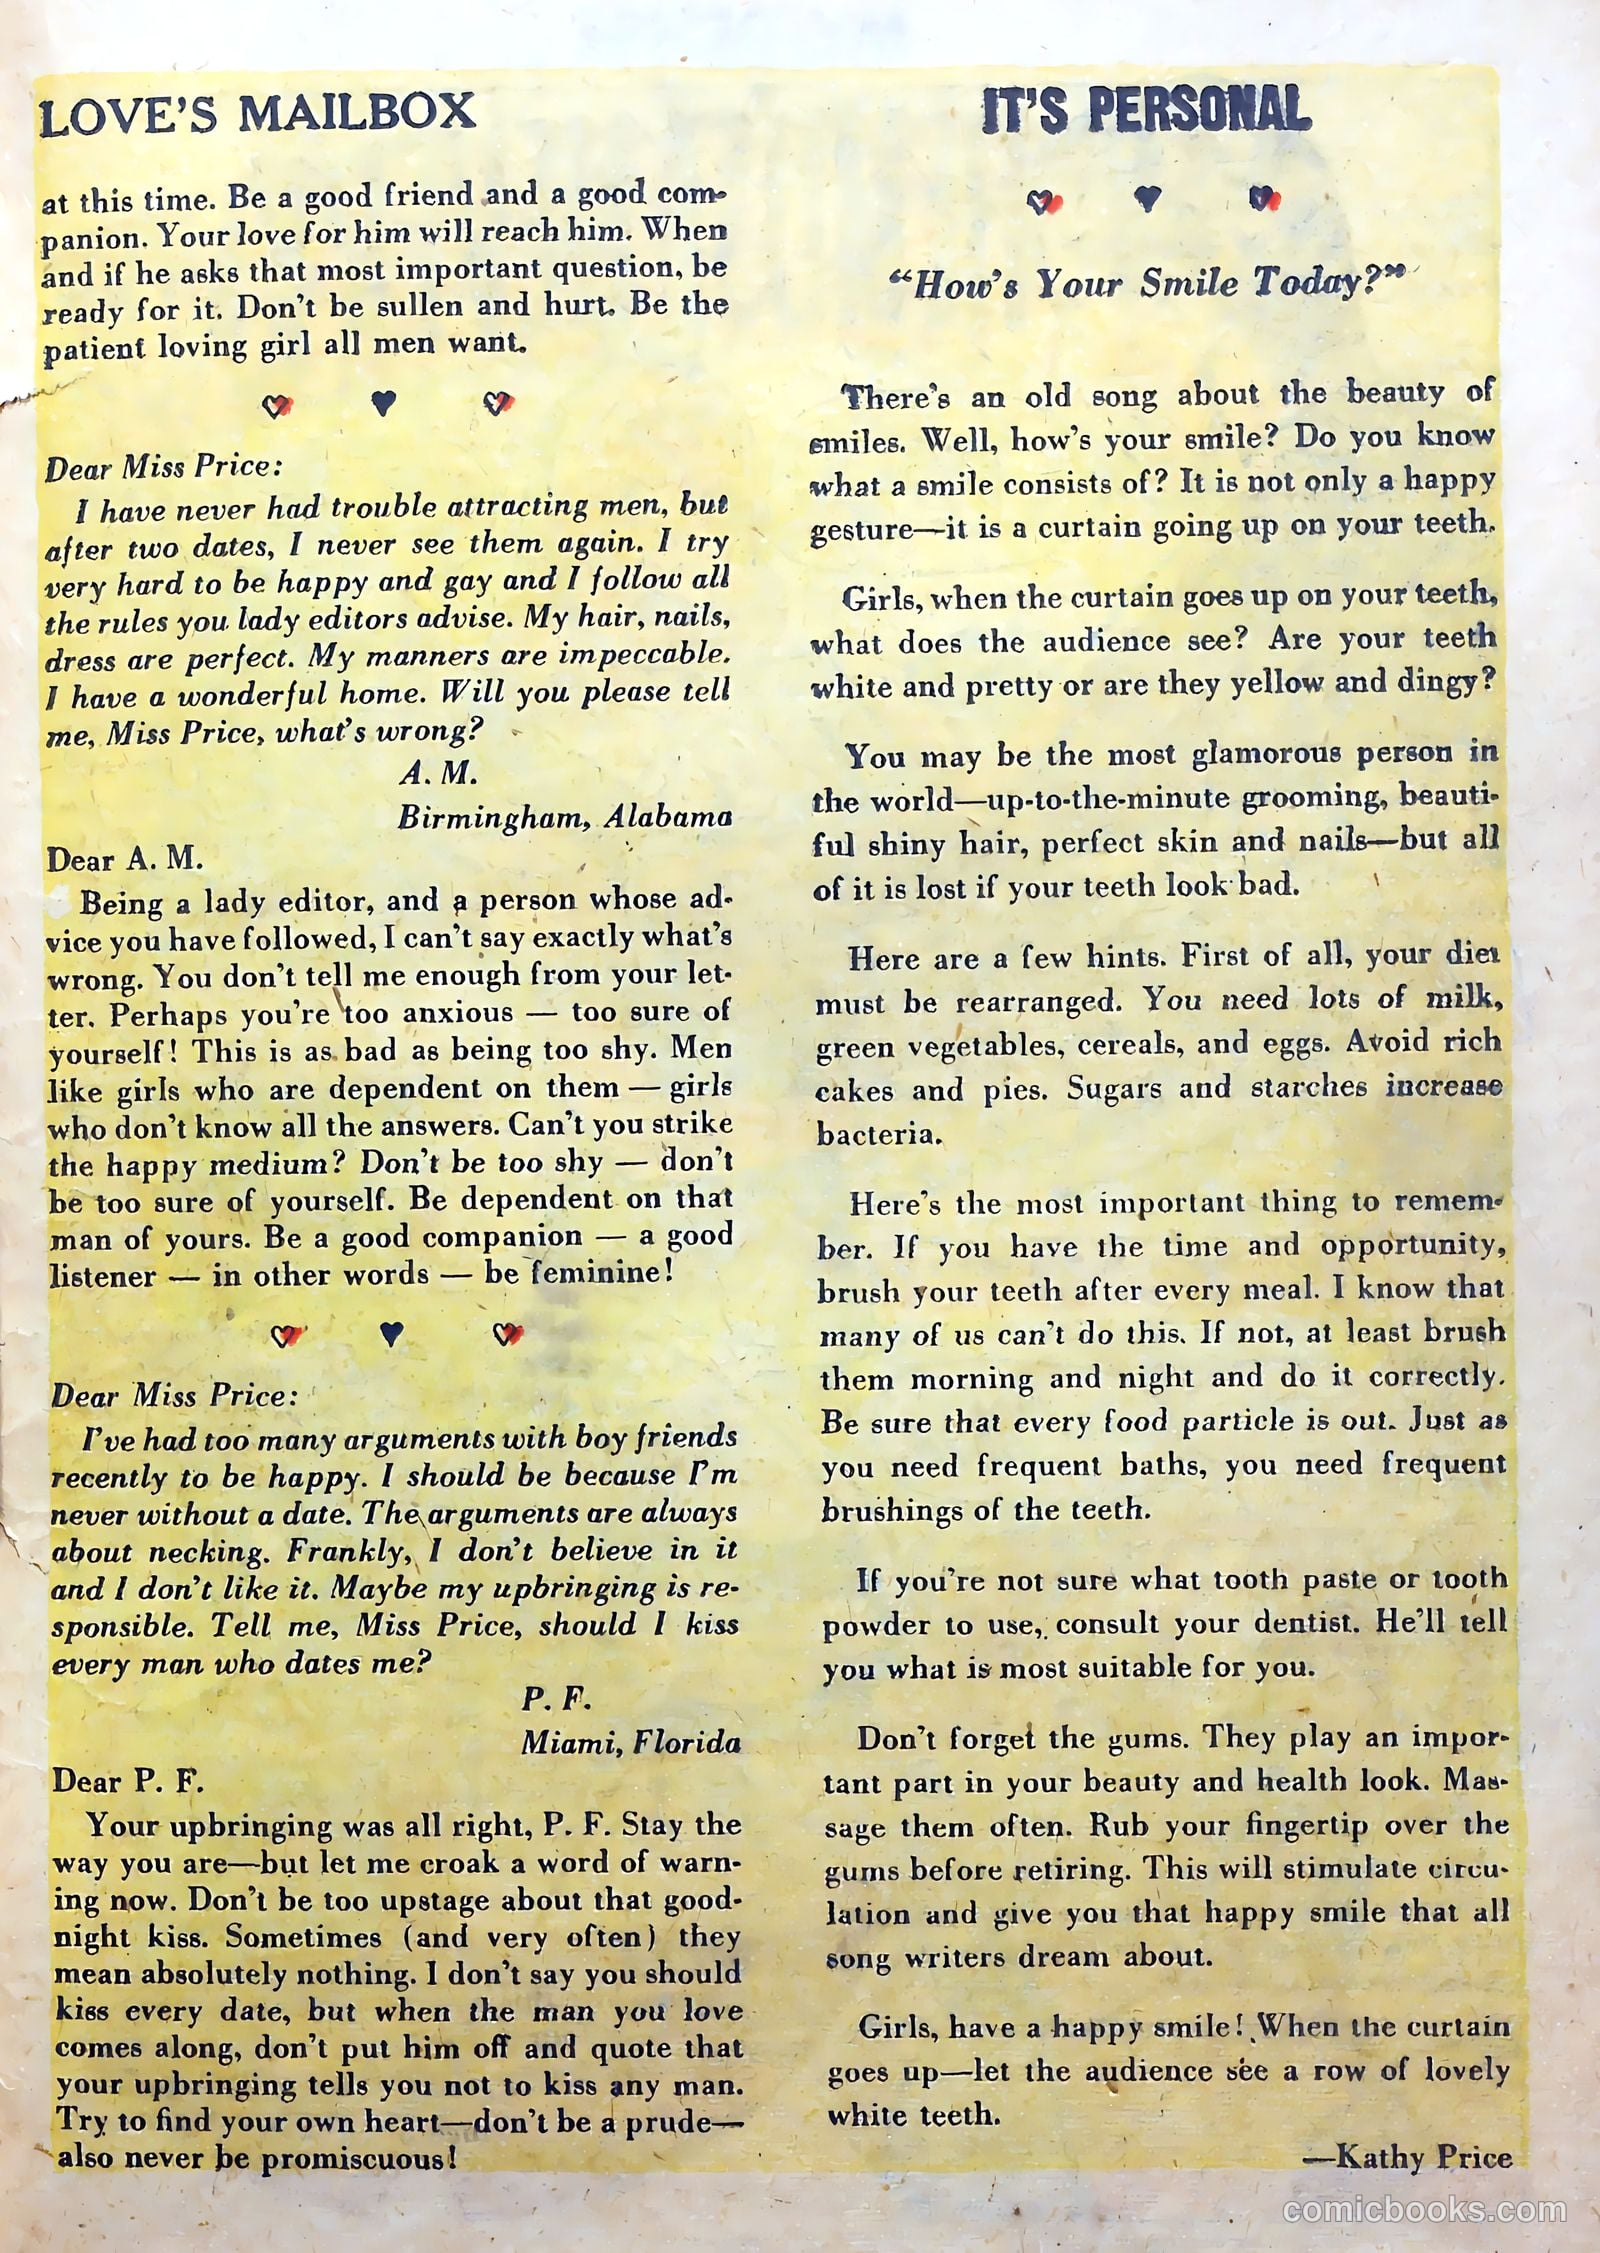 LOVE'S MAILBOX
at this time. Be a good friend and a good com-
panion. Your love for him will reach him. When
and if he asks that most important question, be
ready for it. Don't be sullen and hurt. Be the
patient loving girl all men want.
Dear Miss Price:
I have never had trouble attracting men, but
after two dates, I never see them again. I try
very hard to be happy and gay and I follow all
the rules you lady editors advise. My hair, nails,
dress are perfect. My manners are impeccable.
I have a wonderful home. Will you please tell
me, Miss Price, what's wrong?
A. M.
Birmingham, Alabama
Dear A. M.
Being a lady editor, and a person whose ad-
vice you have followed, I can't say exactly what's
wrong. You don't tell me enough from your let-
ter. Perhaps you're too anxious — too sure of
yourself! This is as bad as being too shy. Men
like girls who are dependent on them — girls
who don't know all the answers. Can't you strike
the happy medium? Don't be too shy — don't
be too sure of yourself. Be dependent on that
man of yours. Be a good companion — a good
listener — in other words — be feminine!
Dear Miss Price:
I've had too many arguments with boy friends
recently to be happy. I should be because I'm
never without a date. The arguments are always
about necking. Frankly, I don't believe in it
and I don't like it. Maybe my upbringing is re-
sponsible. Tell me, Miss Price, should I kiss
every man who dates me?
P. F.
Miami, Florida
Dear P. F.
Your upbringing was all right, P. F. Stay the
way you are—but let me croak a word of warn-
ing now. Don't be too upstage about that good-
night kiss. Sometimes (and very often) they
mean absolutely nothing. I don't say you should
kiss every date, but when the man you love
comes along, don't put him off and quote that
your upbringing tells you not to kiss any man.
Try to find your own heart—don't be a prude—
also never be promiscuous!
IT'S PERSONAL
"How's Your Smile Today?"
There's an old song about the beauty of
smiles. Well, how's your smile? Do you know
what a smile consists of? It is not only a happy
gesture—it is a curtain going up on your teeth.
Girls, when the curtain goes up on your teeth,
what does the audience see? Are your teeth
white and pretty or are they yellow and dingy?
You may be the most glamorous person in
the world—up-to-the-minute grooming, beauti-
ful shiny hair, perfect skin and nails—but all
of it is lost if your teeth look bad.
Here are a few hints. First of all, your diet
must be rearranged. You need lots of milk,
green vegetables, cereals, and eggs. Avoid rich
cakes and pies. Sugars and starches increase
bacteria.
Here's the most important thing to remem-
ber. If you have the time and opportunity,
brush your teeth after every meal. I know that
many of us can't do this. If not, at least brush
them morning and night and do it correctly.
Be sure that every food particle is out. Just as
you need frequent baths, you need frequent
brushings of the teeth.
If you're not sure what tooth paste or tooth
powder to use, consult your dentist. He'll tell
you what is most suitable for you.
Don't forget the gums. They play an impor-
tant part in your beauty and health look. Mas-
sage them often. Rub your fingertip over the
gums before retiring. This will stimulate circu-
lation and give you that happy smile that all
song writers dream about.
Girls, have a happy smile! When the curtain
goes up—let the audience see a row of lovely
white teeth.
—Kathy Price
comicbooks.com